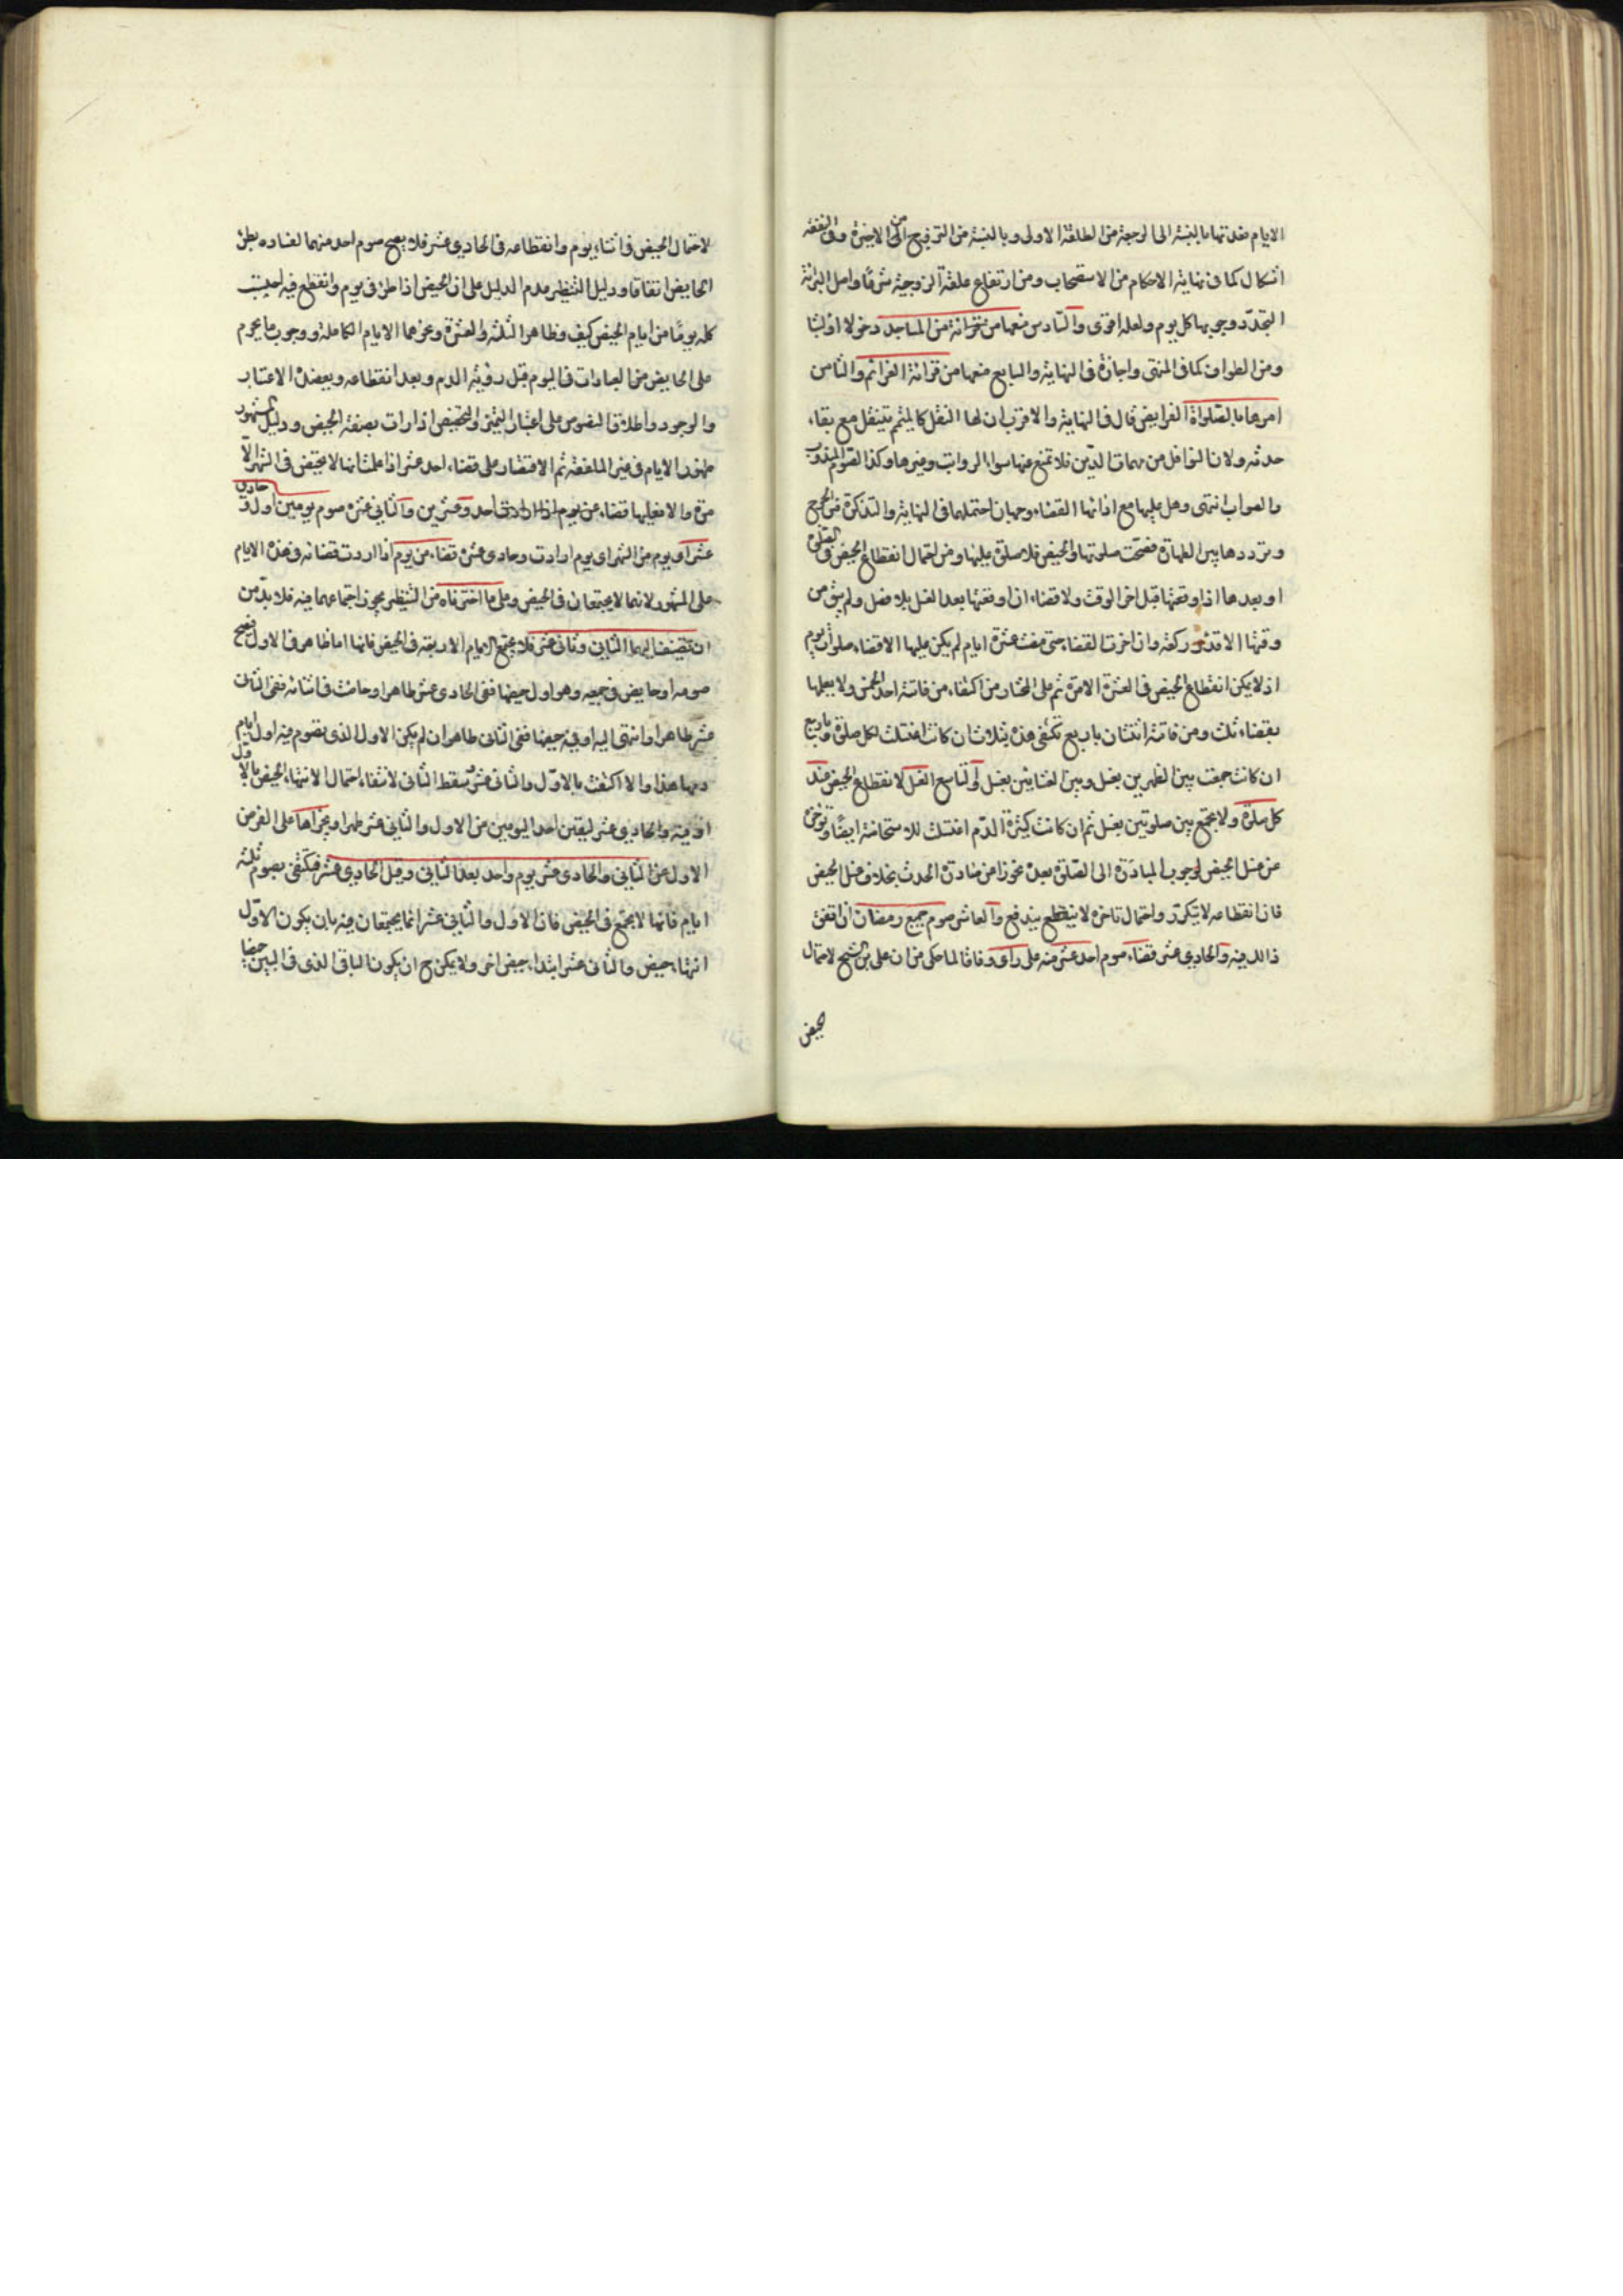 الايام فعدتها بالنسبة الى الرجعة من الطلقة الاولى وبالنسبة من التزويج الى من الاخيرة وفى النفقة
اشكال كما في نهاية الاحكام من الاستصحاب ومن ارتفاع علقة الزوجية شرعا واصل البرائة
التجدد وجوبها كل يوم ولعله اقوى والسادس منعها من قرائة من المساجد دخولا او لبثا
ومن الطواف كما في المنتهى واجازة في النهاية والسابع منعها من قرائة العزائم والثامن
امرها بالصلواة الفرايض قال في النهاية والاقرب ان لها النفل كالمتيمم يتنفل مع بقاء
حدثه ولان النوافل من مهمات الدين فلا تمنع عنها سواء الرواتب وغيرها وكذا الصوم المندوب
والصواب انتهى وهل عليها مع ادائها القضاء وجهان احتملهما في النهاية والتذكرة من الحرج
وترددها بين الطهارة فصحت صلوتها والحيض فلا صلوة عليها ومن احتمال انقطاع الحيض في الصلوة
او بعدها اذا اوقعتها قبل اخر الوقت ولا قضاء ان اوقعتها بعد الغسل بلا فصل ولم يبق من
وقتها الا قدر ركعة وان اخرت القضاء حتى مضت عشرة ايام لم يكن عليها الا قضاء صلوات يوم
اذ لا يمكن انقطاع الحيض في العشرة الا مرة ثم على المختار من اكتفاء من فاتته احد الخمس ولا يعلمها
بقضاء ثلث ومن فاتته اثنتان باربع تكتفى هذه بثلاث ان كانت اغتسلت لكل صلوة وباربع
ان كانت جمعت بين الظهرين بغسل وبين العشائين بغسل والتاسع الغسل لانقطاع الحيض عند
كل صلوة ولا تجمع بين صلوتين بغسل ثم ان كانت كثيرة الدم اغتسلت للاستحاضة ايضا وتؤخره
عن غسل الحيض لوجوب المبادرة الى الصلوة بعده تحرزا من مبادرة الحدث بخلاف غسل الحيض
فان انقطاعه لا يتكرر واحتمال تاخره لا ينقطع يندفع والعاشر صوم جميع رمضان ان اتفق
ذالك فيه والحادي عشر قضاء صوم احد عشر منه على راى وفاقا لما حكى من ان على بن الشيخ لاحتمال
الحيض
لاحتمال الحيض في اثناء يوم وانقطاعه في الحادي عشر فلا يصح صوم احد منهما لفساده بطرو
الحايض اتفاقا ودليل التنظير عدم الدليل على ان الحيض اذا طرء في يوم وانقطع فيه احتسب
كله يوما من ايام الحيض كيف وظاهر الثلثة والعشرة ونحوهما الايام الكاملة ووجوب ما يحرم
على الحايض من العبادات في اليوم قبل رؤية الدم وبعد انقطاعه ويعضده الاعتبار
والوجود واطلاق النصوص على اعتبار التميز والتحيض اذا رات بصفة الحيض ودليل المشهور
ظهور الايام في غير الملفقة ثم الاقتصار على قضاء احد عشر اذا علمت انها لا تحيض في الشهر الا
مرة والا فعليها قضاء عن يوم اذا ارادت احد وعشرين والثاني عشر صوم يومين اول و حادي
عشر اى يوم من الشهر اى يوم ارادت وحادى عشره قضاء عن يوم اذا اردت قضائه في هذه الايام
على المشهور لانهما لا يجتمعان في الحيض وعلى ما اخترناه من التنظير يجوز اجتماعهما فيه فلا بد من
ان تضيف اليهما الثاني وثاني عشر فلا يجتمع الايام الاربعة في الحيض فانها اما طاهر في الاول فصح
صومه او حايض في جميعه وهو اول حيضها ففى الحادى عشر طاهر او حاضت في اثنائه ففى الثانى
عشر طاهر او انتهى اليه او فيه حيضها ففى الثاني طاهر ان لم يكن الاول الذى تصوم فيه اول ايام
دمها هذا والا اكتفت بالاول والثاني عشر سقط الثاني لانتفاء احتمال الانتهاء الحيض بالاول
او فيه والحادي عشر ليقين احد اليومين من الاول والثاني عشر طهرا ويجزاها على الفرض
الاول عن الثاني والحادى عشر يوم واحد بعد الثاني وقبل الحادي عشر فتكتفى بصوم ثلثة
ايام فانها لا تجتمع في الحيض فان الاول والثاني عشر انما يجتمعان فيه بان يكون الاول
انتهاء حيض والثاني عشر ابتداء حيض اخر ولا يمكن ح ان يكون الباقى الذى في البين حيضا